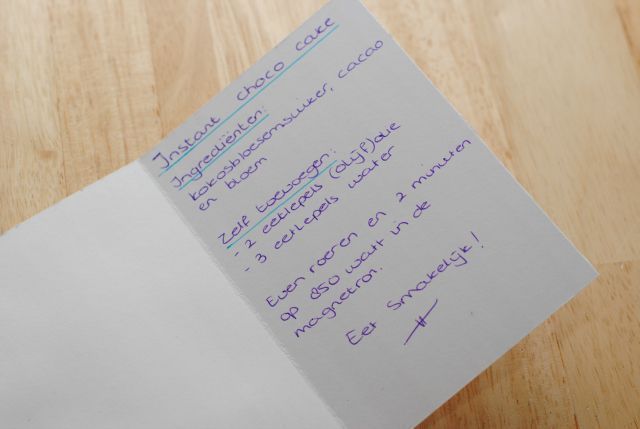 Instant choco cake
Ingrediënten:
kokosbloesemsuiker, cacao
en bloem
Zelf toevoegen:
- 2 eetlepels (olijf)olie
- 3 eetlepels water
Even roeren en 2 minuten
op 850 watt in de
magnetron.
Eet smakelijk!